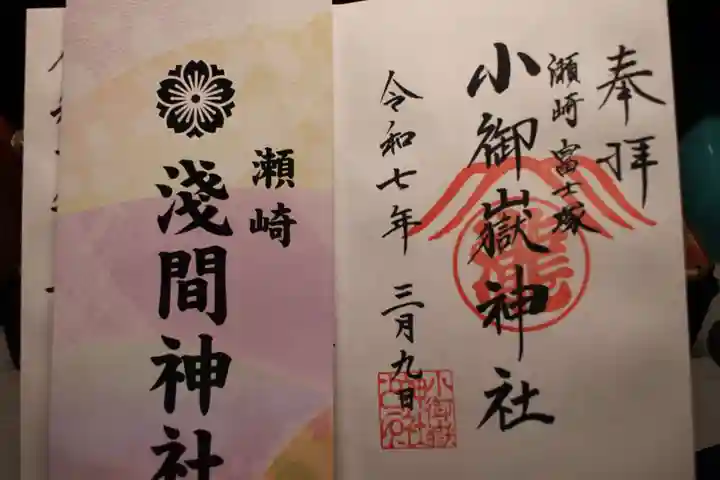 奉拝
瀬崎 富士塚
小御嶽神社
令和七年 三月九日
瀬崎
淺間神社